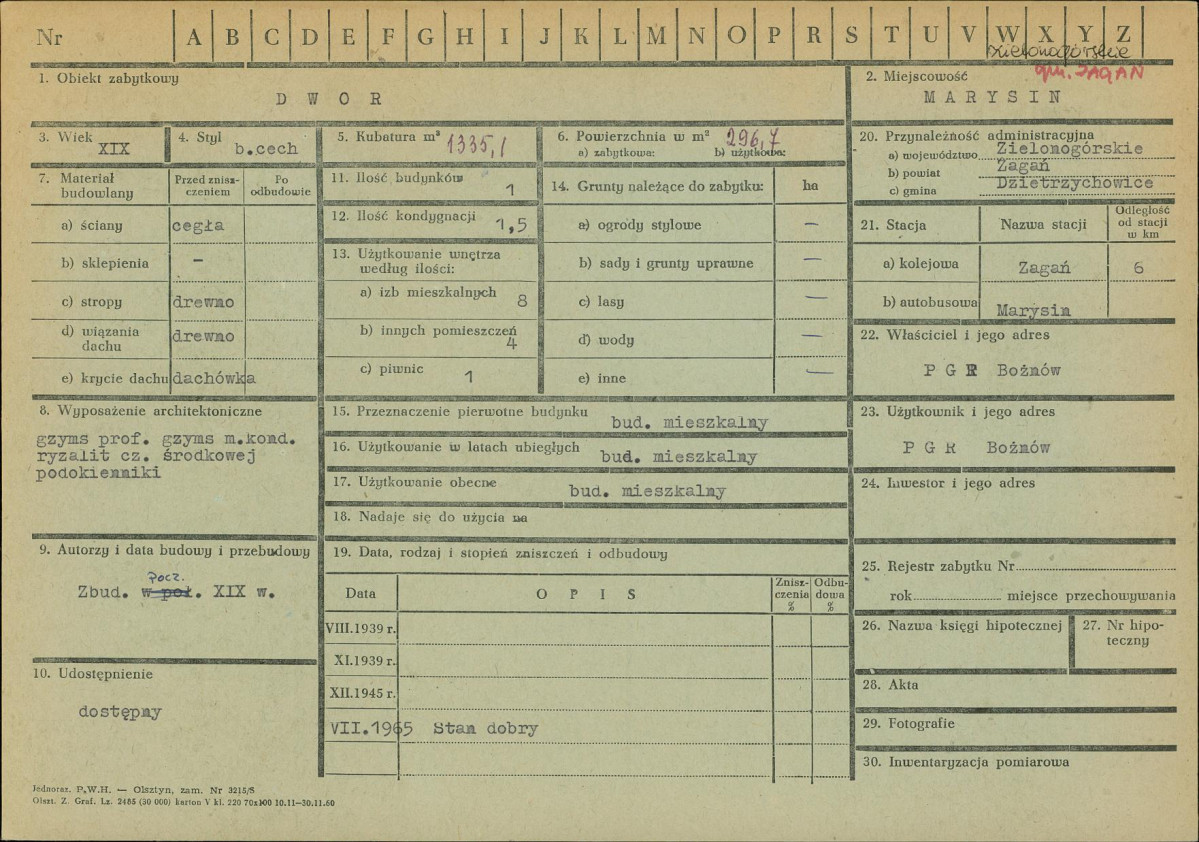 Nr A B C D E F G H I J K L M N O P R S T U V W X Y Z
zielonogórskie
gm. ŻAGAŃ
1. Obiekt zabytkowy
D W O R
2. Miejscowość
M A R Y S I N
3. Wiek
XIX
4. Styl
b.cech
5. Kubatura m³
1335,1
6. Powierzchnia w m²
296,7
a) zabytkowa: b) użytkowa:
20. Przynależność administracyjna
a) województwo Zielonogórskie
b) powiat Żagań
c) gmina Dzietrzychowice
7. Materiał budowlany
Przed znisz-
czeniem
Po
odbudowie
a) ściany cegła
b) sklepienia –
c) stropy drewno
d) wiązania
dachu drewno
e) krycie dachu dachówka
11. Ilość budynków
1
12. Ilość kondygnacji
1,5
13. Użytkowanie wnętrza
według ilości:
a) izb mieszkalnych 8
b) innych pomieszczeń
4
c) piwnic 1
14. Grunty należące do zabytku: ha
a) ogrody stylowe —
b) sady i grunty uprawne —
c) lasy —
d) wody —
e) inne —
21. Stacja Nazwa stacji
Odległość
od stacji
w km
a) kolejowa Żagań 6
b) autobusowa Marysin
22. Właściciel i jego adres
P G R Bożnów
8. Wyposażenie architektoniczne
gzyms prof. gzyms m.kond.
ryzalit cz. środkowej
podokienniki
15. Przeznaczenie pierwotne budynku
bud. mieszkalny
16. Użytkowanie w latach ubiegłych
bud. mieszkalny
17. Użytkowanie obecne
bud. mieszkalny
18. Nadaje się do użycia na
23. Użytkownik i jego adres
P G R Bożnów
24. Inwestor i jego adres
9. Autorzy i data budowy i przebudowy
pocz.
Zbud. w poł. XIX w.
19. Data, rodzaj i stopień zniszczeń i odbudowy
Data O P I S
Znisz-
czenia
%
Odbu-
dowa
%
VIII.1939 r.
XI.1939 r.
XII.1945 r.
VII.1965 Stan dobry
25. Rejestr zabytku Nr
rok miejsce przechowywania
26. Nazwa księgi hipotecznej
27. Nr hipo-
teczny
10. Udostępnienie
dostępny
28. Akta
29. Fotografie
30. Inwentaryzacja pomiarowa
Jednoraz. P.W.H. — Olsztyn, zam. Nr 3215/S
Olszt. Z. Graf. Lz. 2485 (30 000) karton V kl. 220 70x100 10.11—30.11.60